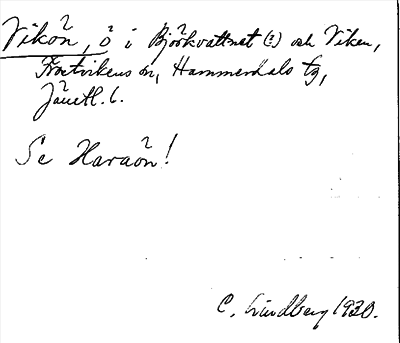 Vikön, ö i Björkvattnet (?) och Viken,
Frostvikens sn, Hammerdals tg,
Jämtl. l.
Se Haraön!
C. Lindberg 1930.